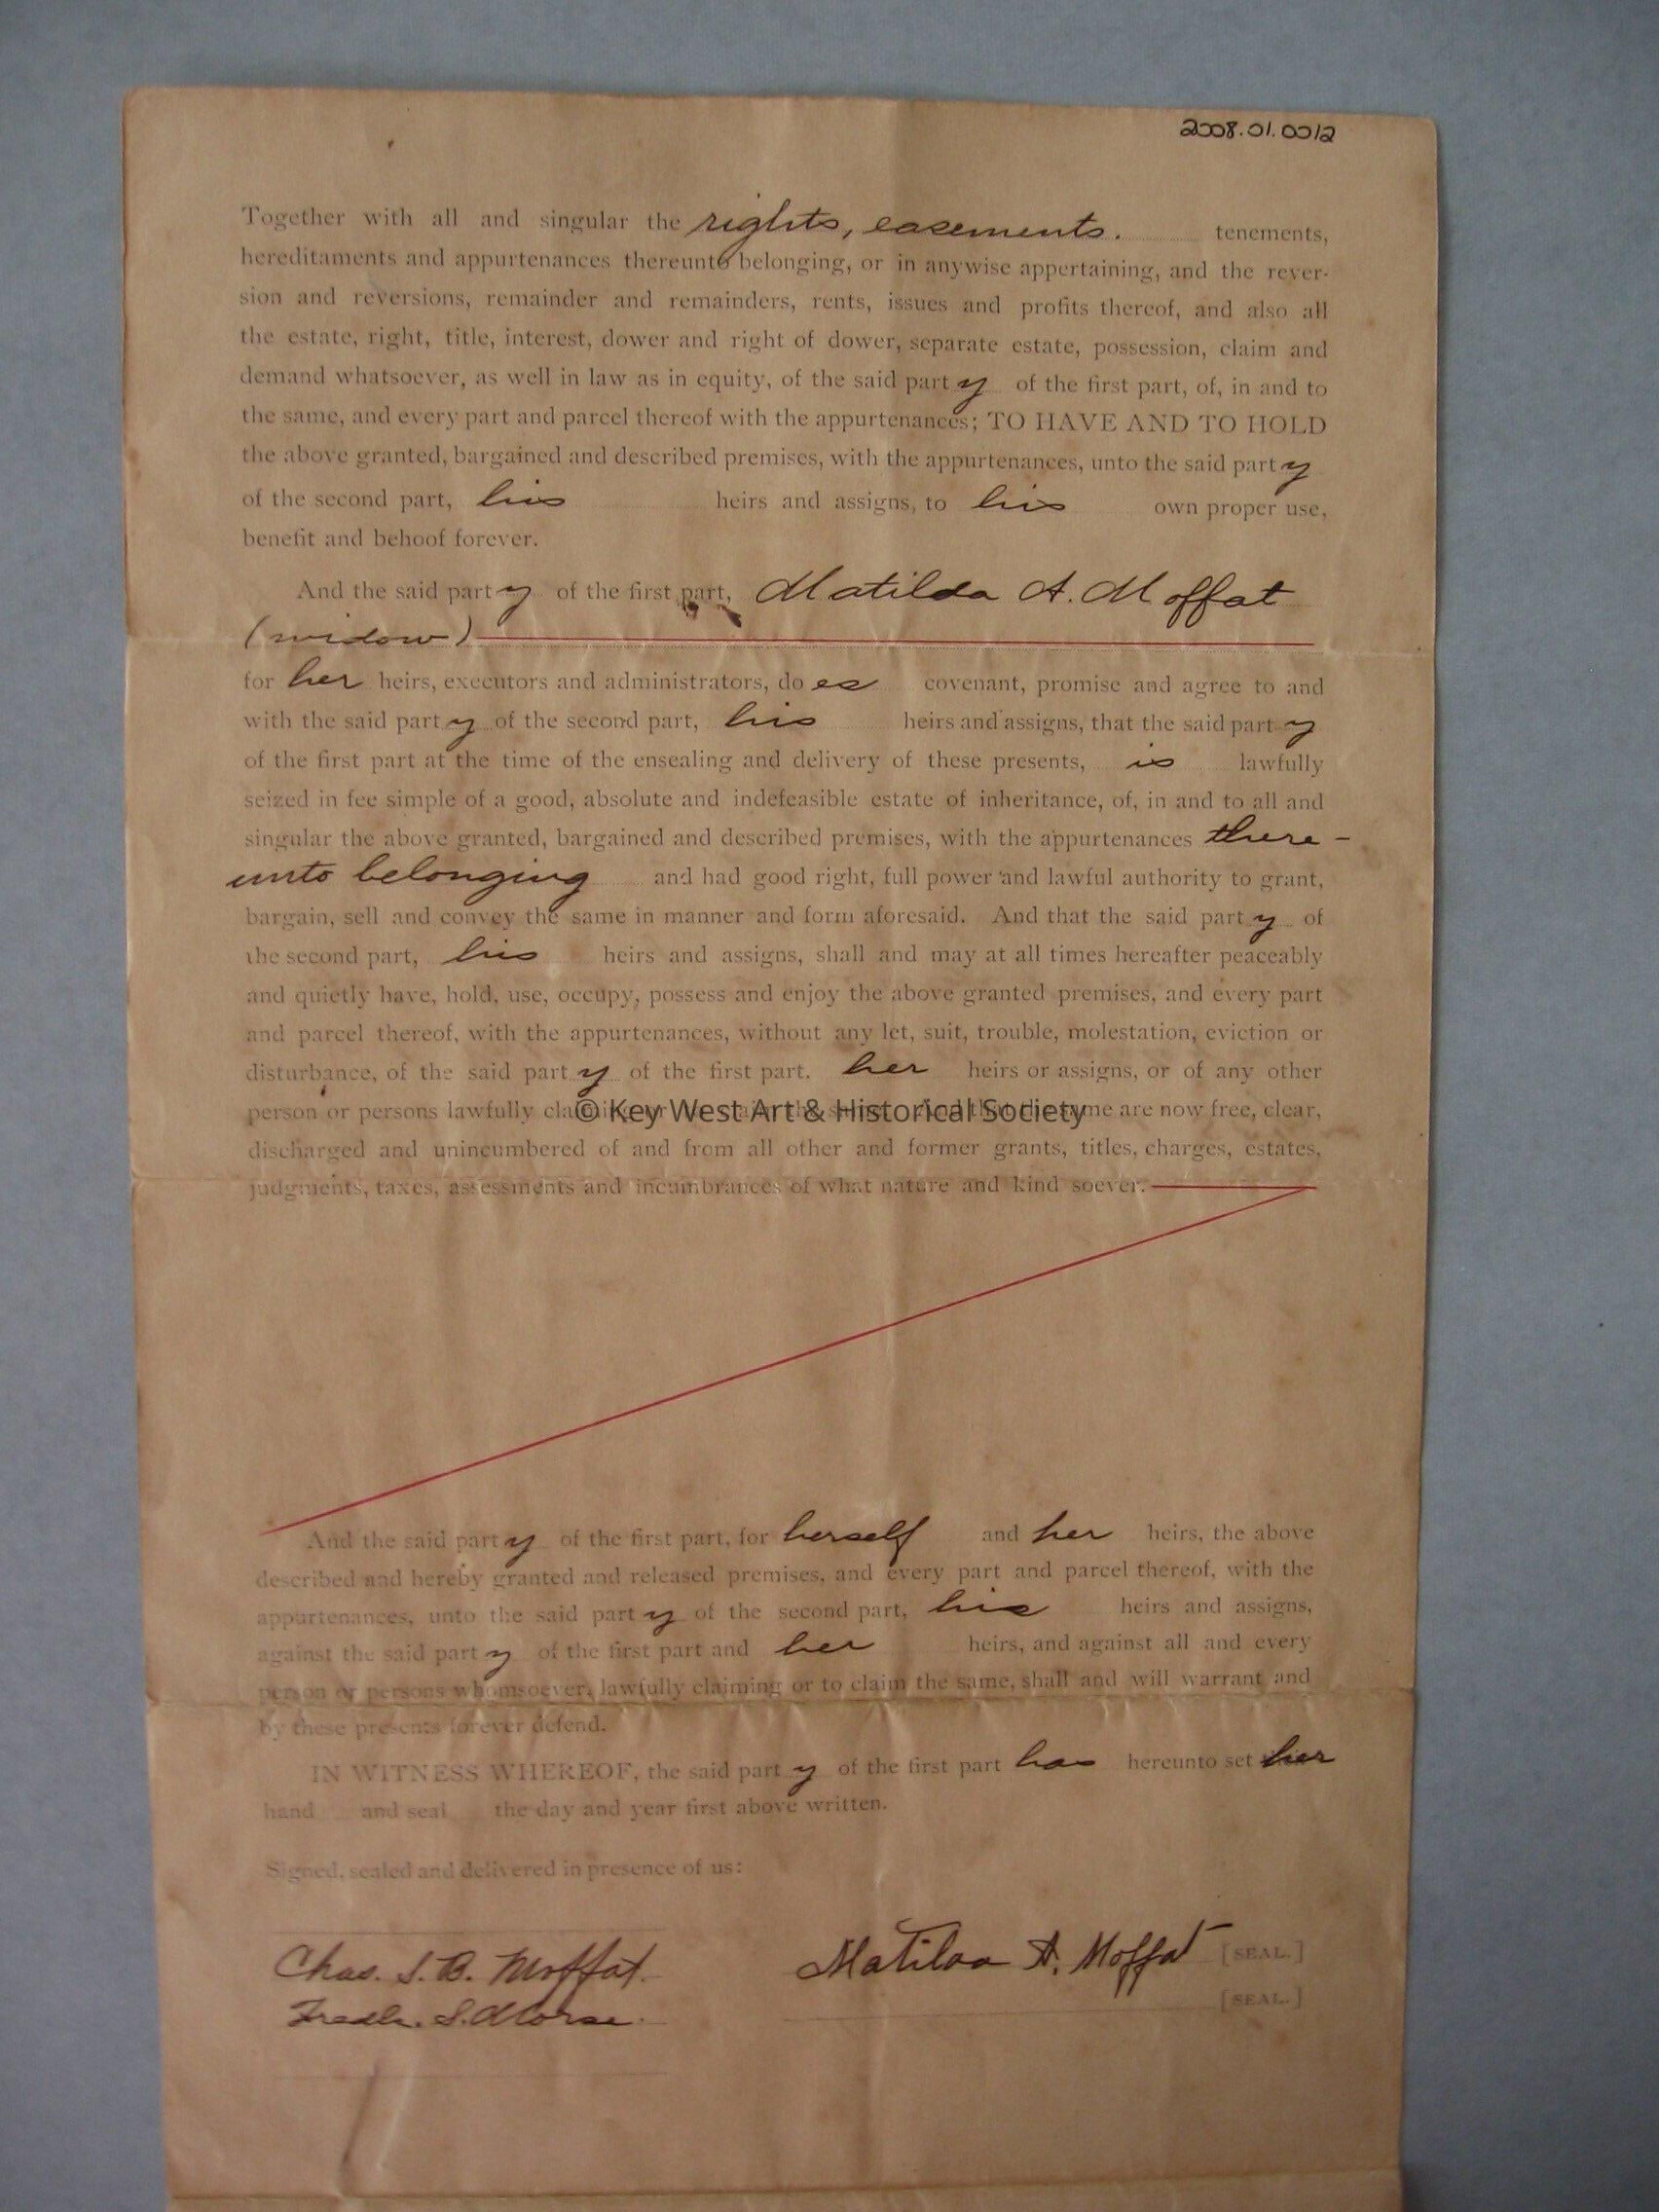 2008.01.0012
Together with all and singular the rights, easements. tenements,
hereditaments and appurtenances thereunto belonging, or in anywise appertaining, and the rever-
sion and reversions, remainder and remainders, rents, issues and profits thereof, and also all
the estate, right, title, interest, dower and right of dower, separate estate, possession, claim and
demand whatsoever, as well in law as in equity, of the said party of the first part, of, in and to
the same, and every part and parcel thereof with the appurtenances; TO HAVE AND TO HOLD
the above granted, bargained and described premises, with the appurtenances, unto the said party
of the second part, his heirs and assigns, to his own proper use,
benefit and behoof forever.
And the said party of the first part, Matilda A. Moffat
(widow)
for her heirs, executors and administrators, does covenant, promise and agree to and
with the said party of the second part, his heirs and assigns, that the said party
of the first part at the time of the ensealing and delivery of these presents, is lawfully
seized in fee simple of a good, absolute and indefeasible estate of inheritance, of, in and to all and
singular the above granted, bargained and described premises, with the appurtenances there-
unto belonging and had good right, full power and lawful authority to grant,
bargain, sell and convey the same in manner and form aforesaid. And that the said party of
the second part, his heirs and assigns, shall and may at all times hereafter peaceably
and quietly have, hold, use, occupy, possess and enjoy the above granted premises, and every part
and parcel thereof, with the appurtenances, without any let, suit, trouble, molestation, eviction or
disturbance, of the said party of the first part, her heirs or assigns, or of any other
person or persons lawfully are now free, clear,
© Key West Art & Historical Society
discharged and unincumbered of and from all other and former grants, titles, charges, estates,
judgments, taxes, assessments and incumbrances of what nature and kind soever.
And the said party of the first part, for herself and her heirs, the above
described and hereby granted and released premises, and every part and parcel thereof, with the
appurtenances, unto the said party of the second part, his heirs and assigns,
against the said party of the first part and her heirs, and against all and every
person or persons whomsoever, lawfully claiming or to claim the same, shall and will warrant and
by these presents forever defend.
IN WITNESS WHEREOF, the said party of the first part has hereunto set her
hand and seal the day and year first above written.
Signed, sealed and delivered in presence of us:
Chas. S. B. Moffat. Matilda A. Moffat [SEAL.]
Fredk. S. Morse. [SEAL.]